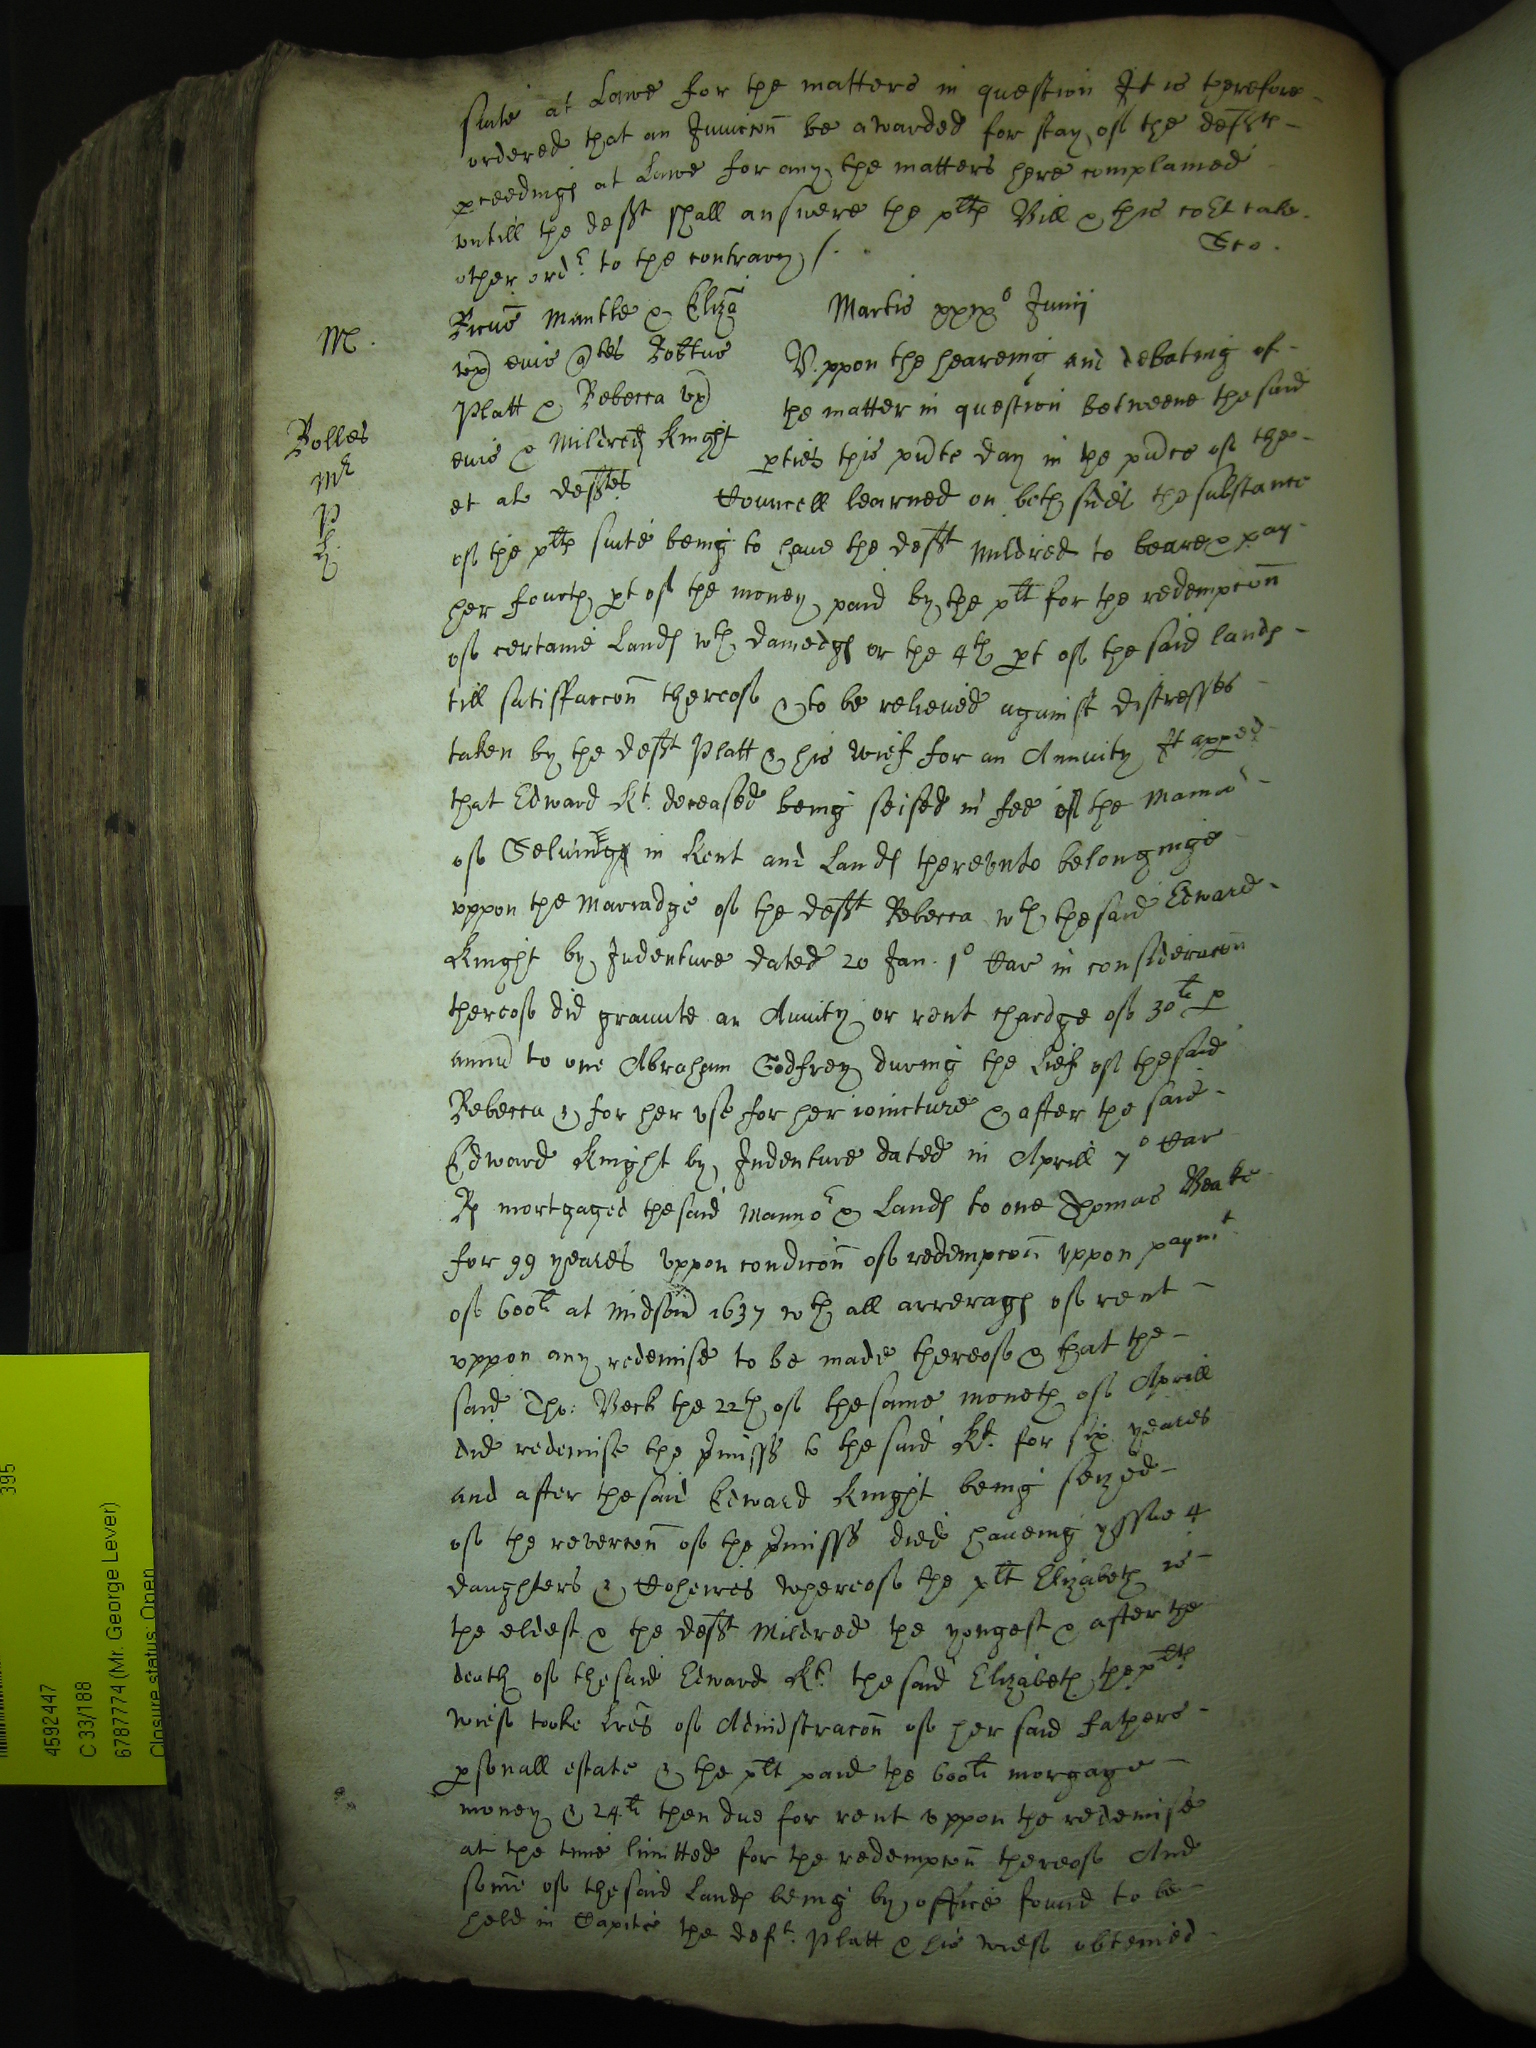 suite at Lawe for the matters in question It is therefore
ordered that an Iniuccon be awarded for stay of the defts
pceedings at Lawe for any the matters here complained
untill the deft shall answere the plts Bill & this co:rt take
other ord:r to the contrary /.
M.
Ricus Mantle & Eliza
Martis xxix:o Junij
ux eius q:tes Robtus
Uppon the heareing and debating of
Platt & Rebecca ux
the matter in question betweene the said
Rolles
eius & Mildred Knight
pties this pnte day in the pnce of the
M:r
et al deftes
Councell learned on both sides the substance
P
h.
of the plts suite being to haue the deft Mildred to beare & pay
her fourth pt of the money paid by the plt for the redempcon
of certaine Lands wth damedgs or the 4th pt of the said lands
till satisfaccon thereof & to be relieued against distresses
taken by the deft Platt & his wief for an Annuity It apped
that Edward Kt. deceased being seised in fee of the Manno:r
of in Kent and Lands therevnto belonginge
vppon the Marriadge of the deft Rebecca wth the said Edward
Knight by Indenture dated 20 Jan. 1:o Car in consideracon
thereof did graunte an Anuity or rent chardge of 30:li p
annu to one Abraham Godfrey during the lief of the said
Rebecca & for her vse for her ioincture & after the said
Edward Knight by Indenture dated in Aprill 7:o Car
Rs mortgaged the said Manno:r & Lands to one Thomas Beake
for 99 yeares vppon condicon of redempcon vppon paym:t
of 600:li at Midsom 1637 wth all arrerages of rent
vppon any redemise to be made thereof & that the
said Tho: Beck the 22th of the same moneth of Aprill
did redemise the pmisses to the said Kt. for six yeares
and after the said Edward Knight being seized
of the revercon of the pmisses died haueing yssue 4
daughters & Coheires whereof the plt Elizabeth is
the eldest & the deft Mildred the yongest & after the
death of the said Edward Kt. the said Elizabeth the plts
wief tooke Lres of Admistracon of her said fathers
psonall estate & the plt paid the 600:li morgage
money & 24:li then due for rent vppon the redemise
at the time limitted for the redempcon thereof And
some of the said Lands being by office found to be
held in Capite the deft. Platt & his wief obteined
395
4592447
C 33/188
6787774 (Mr. George Lever)
Closure status: Open